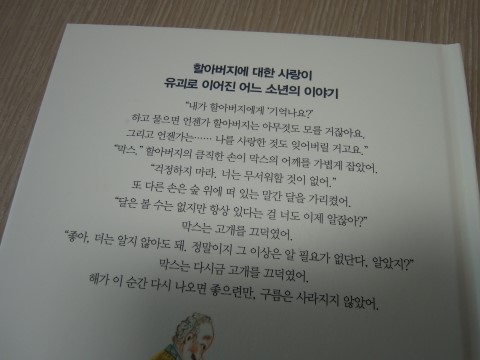 할아버지에 대한 사랑이
유괴로 이어진 어느 소년의 이야기
"내가 할아버지에게 '기억나요?'
하고 물으면 언젠가 할아버지는 아무것도 모를 거잖아요.
그리고 언젠가는…… 나를 사랑한 것도 잊어버릴 거고요."
"막스." 할아버지의 큼직한 손이 막스의 어깨를 가볍게 잡았어.
"걱정하지 마라. 너는 무서워할 것이 없어."
또 다른 손은 숲 위에 떠 있는 말간 달을 가리켰어.
"달은 볼 수는 없지만 항상 있다는 걸 너도 이제 알잖아?"
막스는 고개를 끄덕였어.
"좋아, 더는 알지 않아도 돼. 정말이지 그 이상은 알 필요가 없단다, 알았지?"
막스는 다시금 고개를 끄덕였어.
해가 이 순간 다시 나오면 좋으련만, 구름은 사라지지 않았어.